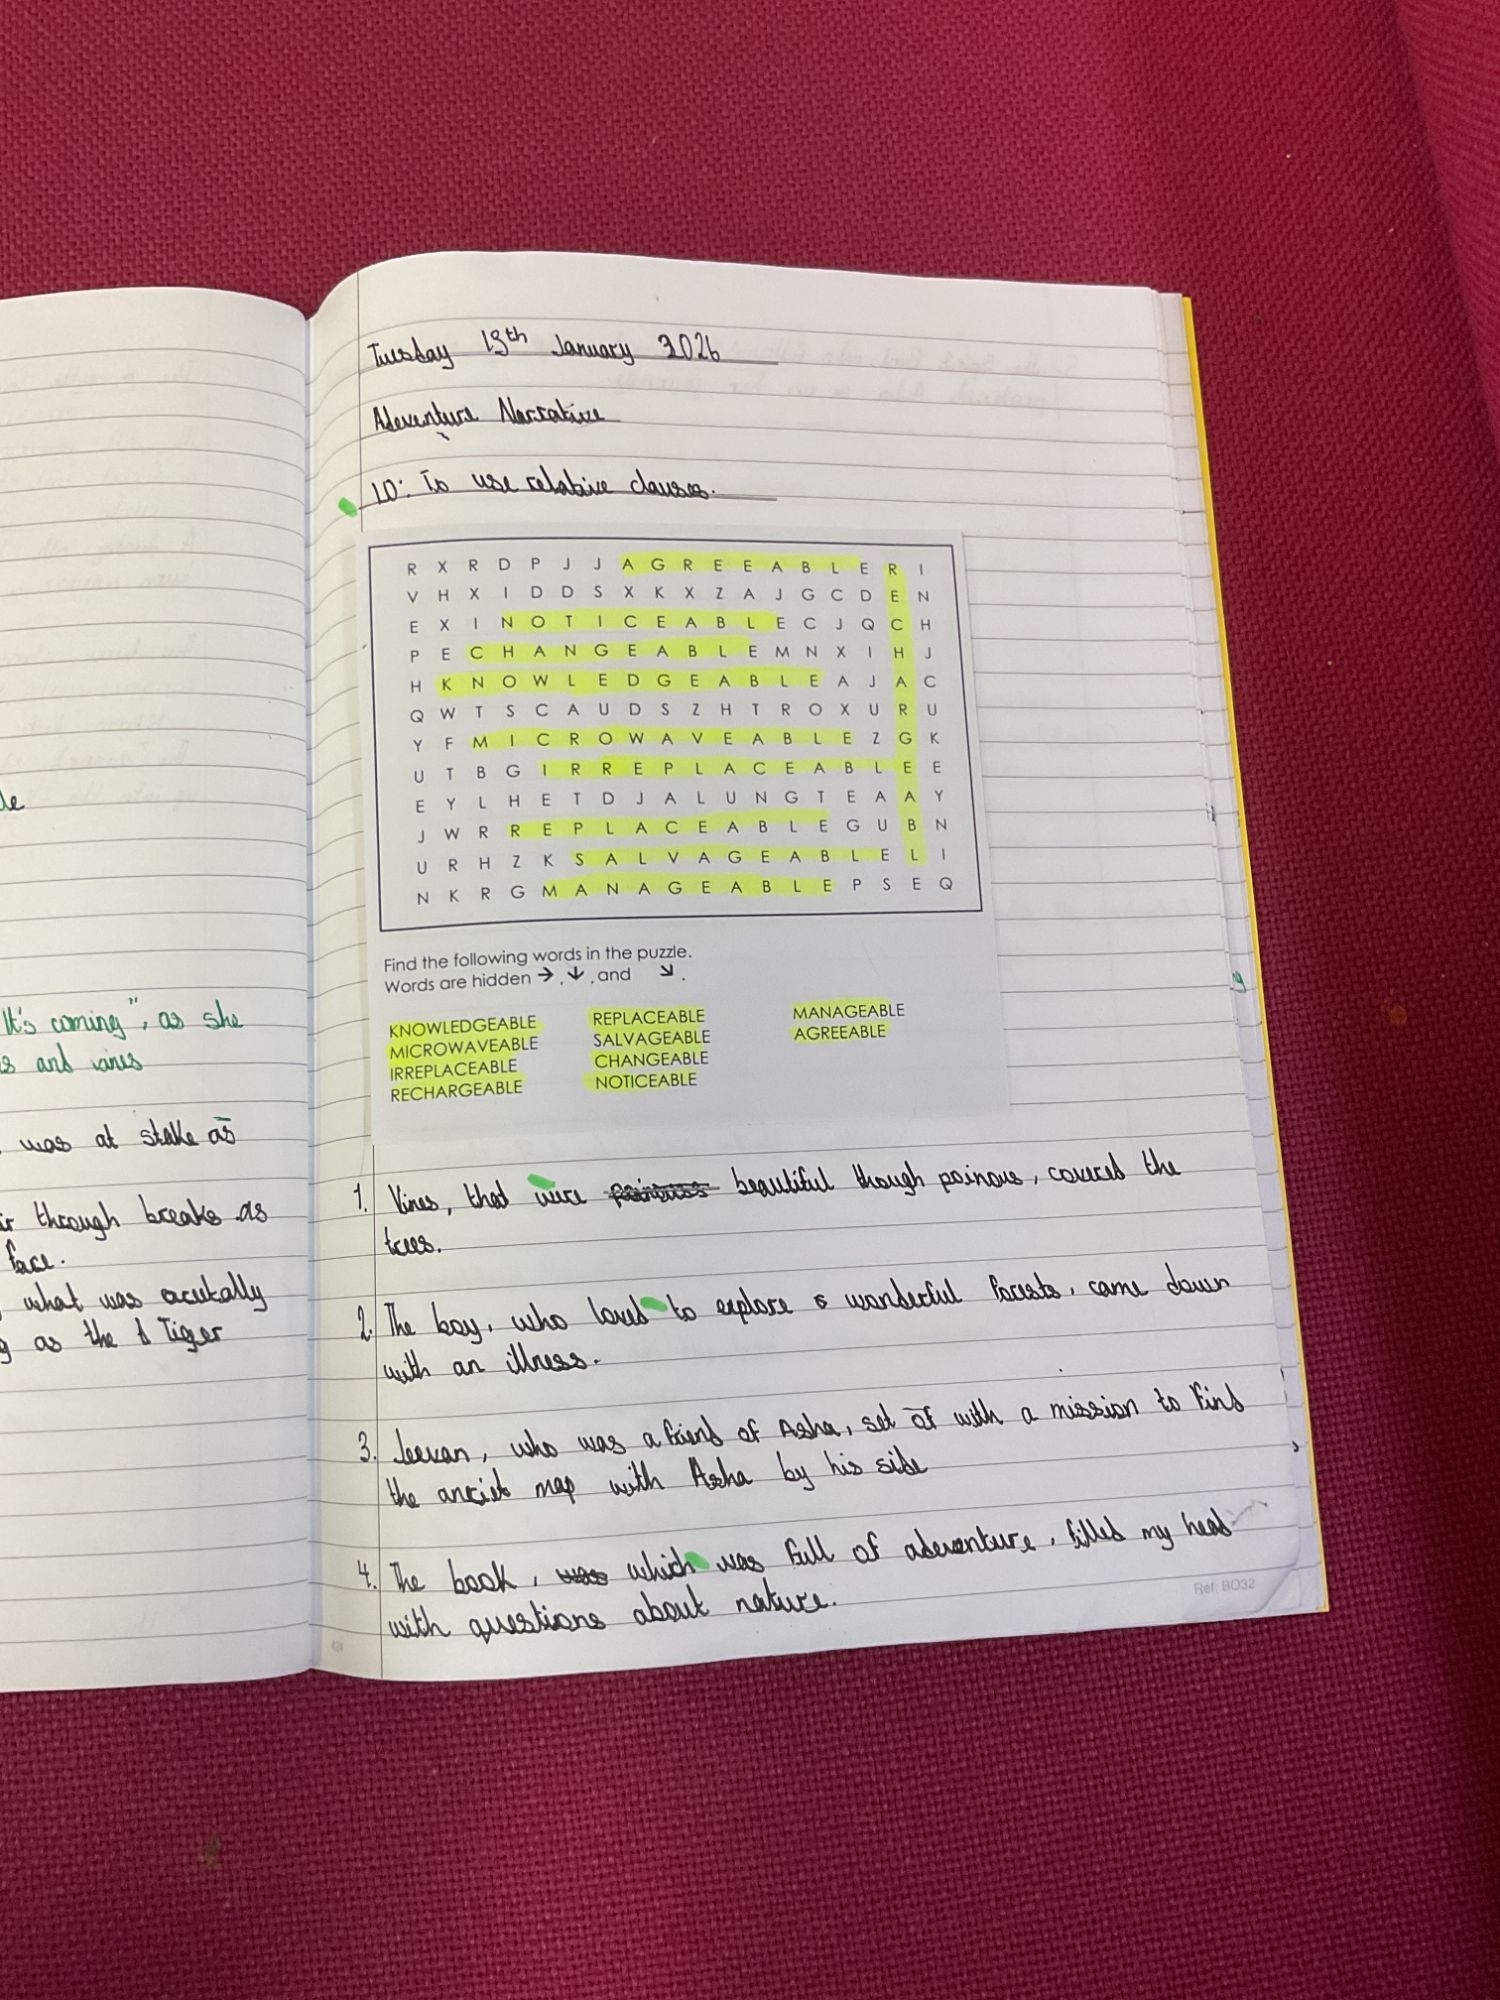 le
It's coming", as she
s and vines
was at stake as
ir through breaks as
face.
what was acutally
g as the Tiger
Tuesday 13th January 2026
Adeventure Narrative
LO: To use relative clauses.
R X R D P J J A G R E E A B L E R I
V H X I D D S X K X Z A J G C D E N
E X I N O T I C E A B L E C J Q C H
P E C H A N G E A B L E M N X I H J
H K N O W L E D G E A B L E A J A C
Q W T S C A U D S Z H T R O X U R U
Y F M I C R O W A V E A B L E Z G K
U T B G I R R E P L A C E A B L E E
E Y L H E T D J A L U N G T E A A Y
J W R R E P L A C E A B L E G U B N
U R H Z K S A L V A G E A B L E L I
N K R G M A N A G E A B L E P S E Q
Find the following words in the puzzle.
Words are hidden →, ↓, and ↘.
KNOWLEDGEABLE
MICROWAVEABLE
IRREPLACEABLE
RECHARGEABLE
REPLACEABLE
SALVAGEABLE
CHANGEABLE
NOTICEABLE
MANAGEABLE
AGREEABLE
1. Vines, that were beautiful though poinous, covered the
trees.
2. The boy, who loved to explore wonderful forests, came down
with an illness.
3. Jeevan, who was a friend of Asha, set of with a mission to find
the anciet map with Asha by his side
4. The book, was which was full of adeventure, filled my head
with questions about nature.
Ref: BO32